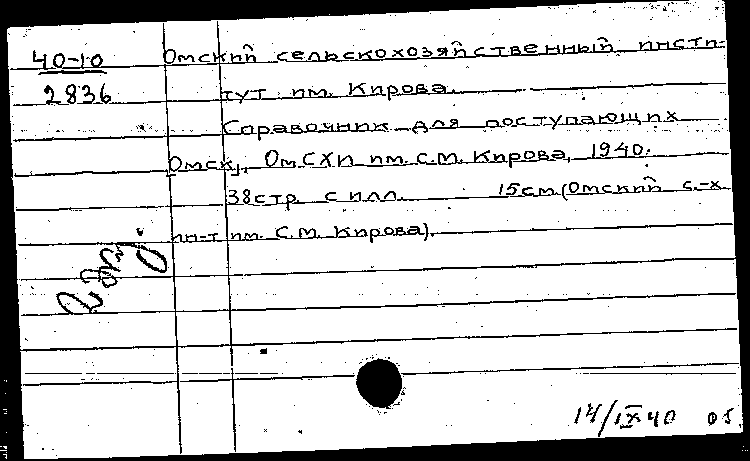 40-10 Омский сельскохозяйственный инсти-
2836 тут им. Кирова.
Справочник для поступающих
Омск, ОмСХИ им. С.М. Кирова, 1940.
38стр. с илл. 15см. (Омский с.-х
ин-т им. С.М. Кирова).
14/IX 40 05